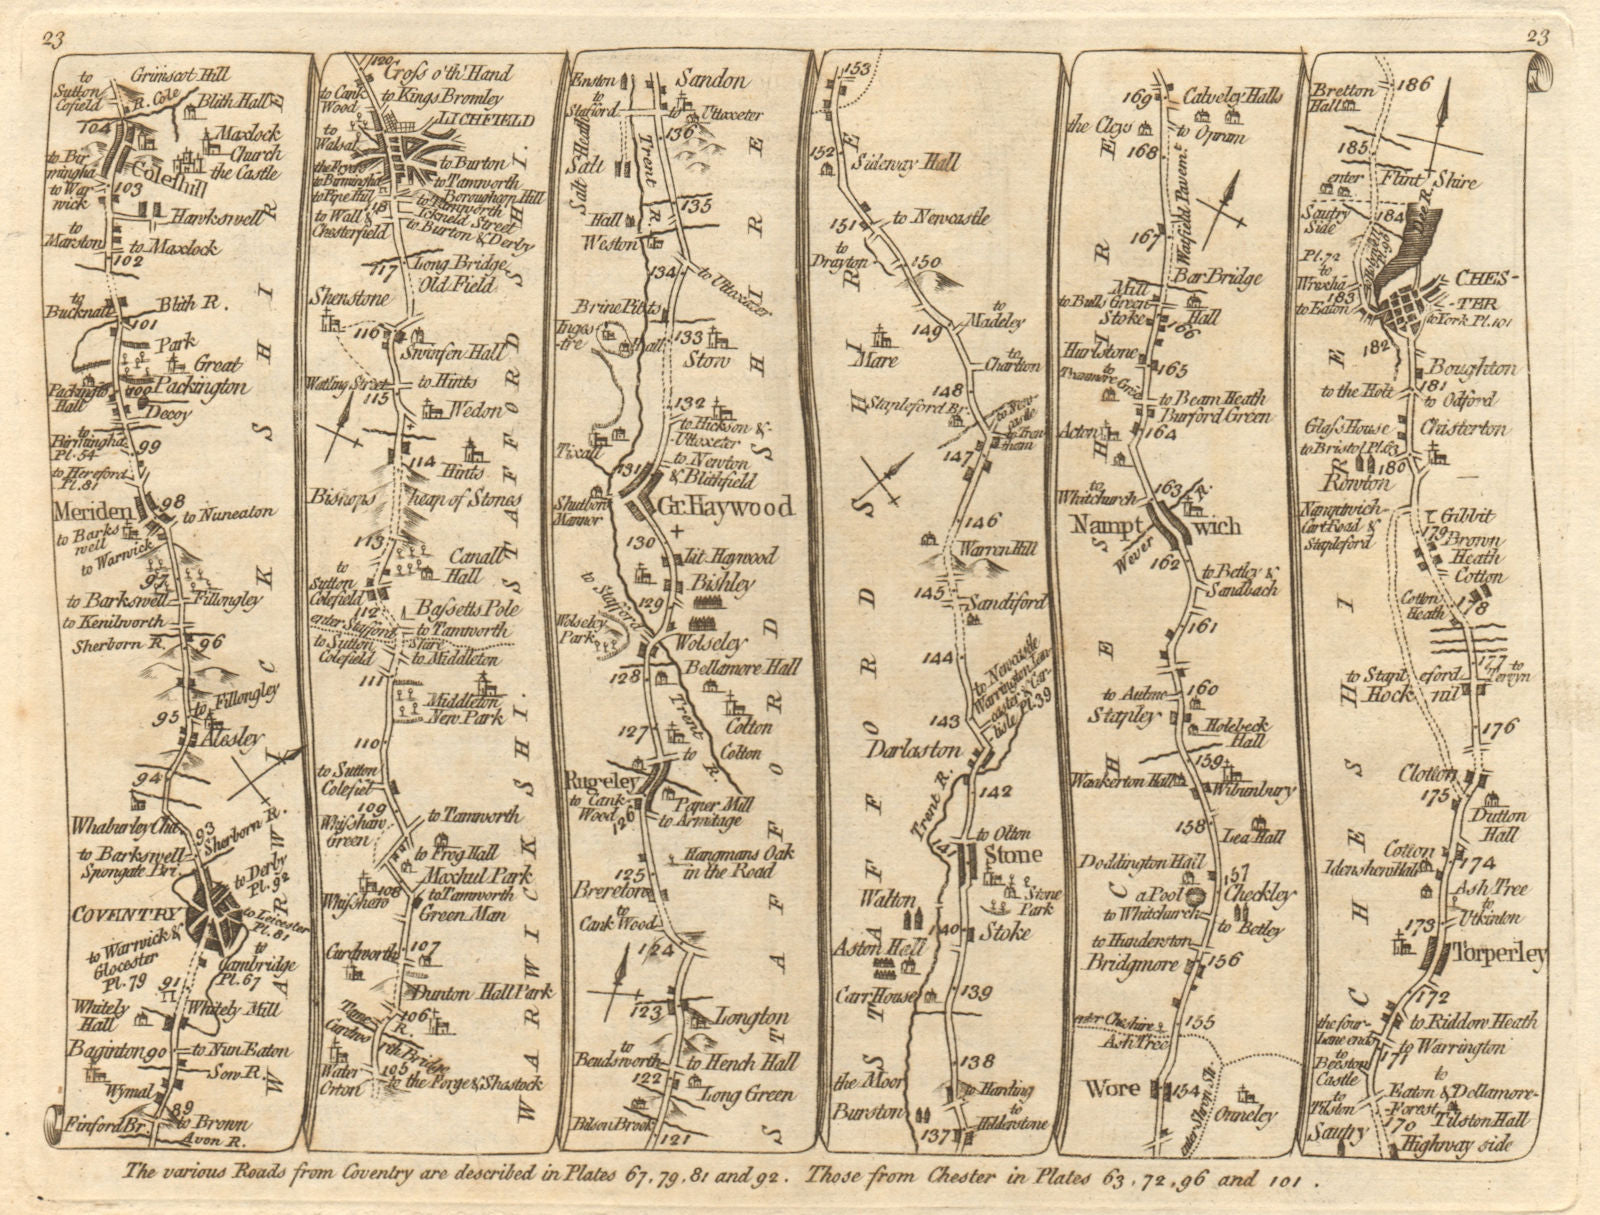 23
23
to Sutton Cofield
Grimscot Hill
R. Cole
Blith Hall
104
Maxlock Church
the Castle
to Birmingha
Colefhill
to Warwick
103
Hawkswell
to Marston
to Maxlock
102
to Bucknall
Blith R.
101
Park
Great Packington
100
Packingto Hall
Decoy
to Birmingha Pl. 54
99
to Hereford Pl. 81
Meriden
98
to Nuneaton
to Barkswell
to Warwick
97
to Barkswell
Fillongley
to Kenilworth
Sherborn R.
96
to Fillongley
95
Alesley
94
Whaburley Cha.
93
Sherborn R.
to Barkswell
Spongate Bri.
to Derby Pl. 92
COVENTRY
to Leicester Pl. 81
to Warwick & Glocester Pl. 79
to Cambridge Pl. 67
91
Whitely Hall
Whitely Mill
Baginton
90
to Nun Eaton
Sow R.
Wymal
89
to Brown
Finford Br.
Avon R.
WARWICKSHIRE
120
Crofs o'th' Hand
to Cank Wood
to Kings Bromley
LICHFIELD
to Walsal
to Burton
the Fryers
to Birmingha
to Tamworth
to Pipe Hill
Borougham Hill
to Tamworth
118
to Wall & Chesterfield
Ickneld Street
to Burton & Derby
117
Long Bridge
Old Field
Shenstone
116
Swinfen Hall
Watling Street
to Hints
115
Wedon
114
Hints
Bishops heap of Stones
113
Canall Hall
to Sutton Colefield
112
Bafsetts Pole
enter Staffordshire
to Tamworth
to Sutton Colefield
to Middleton
111
Middleton New Park
110
to Sutton Colefiel
109
to Tamworth
Whifshaw Green
to Frog Hall
Moxhul Park
108
Whifshaw
to Tamworth
Green Man
Curdworth
107
Dunton Hall Park
106
Tame R.
Curdworth Bridge
Water Orton
105
to the Forge & Shastock
WARWICKSHI.
STAFFORDSHI.
Enston
to Stafford
Sandon
to Uttoxeter
136
Salt Heath
Salt
Trent R.
135
Hall
Weston
134
to Uttoxeter
Brine Pitts
Ingestre
Hall
133
Stow
132
to Hickson & Uttoxeter
Tixall
to Newton & Blithfield
131
Shutbon Mannor
Gr. Haywood
130
Lit. Haywood
Bishley
to Stafford
129
Wolseley Park
Wolseley
Bellamore Hall
128
Trent R.
Colton
127
to Colton
Rugeley
to Cank Wood
Paper Mill
126
to Armitage
Hangmans Oak in the Road
125
Brereton
to Cank Wood
124
123
Longton
to Beudsworth
to Hench Hall
122
Long Green
Bilson Brook
121
STAFFORDSHIRE
153
152
Sideway Hall
151
to Newcastle
to Drayton
150
to Madeley
149
Mare
to Charlton
148
Stapleford Br.
to Newcastle
to Trenham
147
146
Warren Hill
145
Sandiford
144
to Newcastle Warrington Lancaster & Carlile Pl. 39
143
Darlaston
142
Trent R.
to Olton
141
Stone
Walton
Stone Park
140
Stoke
Aston Hall
Carr House
139
138
the Moor
to Harding
Burston
to Hilderstone
137
STAFFORDSHIRE
169
Calveley Halls
the Cleys
to Opram
168
Watfield Pavemt.
167
Bar Bridge
Mill
to Bulls Green
Stoke
Hall
166
Hurlstone
165
to Tranmore Gree
to Beam Heath
Burford Green
Acton
164
to Whitchurch
163
R.
Namptwich
Wever
162
to Betley & Sandbach
161
to Aulme
160
Stapley
Holebeck Hall
159
Wankerton Hall
Wibunbury
158
Lea Hall
Doddington Hall
157
a Pool
Checkley
to Whitchurch
to Betley
to Hunderston
Bridgmore
156
enter Cheshire
155
Ash Tree
Wore
154
enter Shrop. Sh.
Onneley
CHESHIRE
Bretton Hall
186
185
enter Flint Shire
Sautry Side
184
Dee R.
Pl. 72
to Wrexha
183
to Eaton
CHESTER
to York Pl. 101
182
Boughton
181
to the Holt
to Odford
Glafs House
Chisterton
to Bristol Pl. 63
180
Rowton
Namptwich Cart Road & Stapleford
Gibbit
179
Brown Heath
Cotton
Cotton Heath
178
177
to Tervyn
to Stapleford
Hockenil
176
Clotton
175
Dutton Hall
Cotton
174
Idenshew Hall
Ash Tree
to Utkinton
173
Torperley
172
the four Lane ends
to Riddow Heath
to Warrington
171
to Beeston Castle
to Eaton & Dellamore Forest
to Tilston
Tilston Hall
170
Sautry
Highway side
CHESHIRE
The various Roads from Coventry are described in Plates 67, 79, 81 and 92. Those from Chester in Plates 63, 72, 96 and 101.